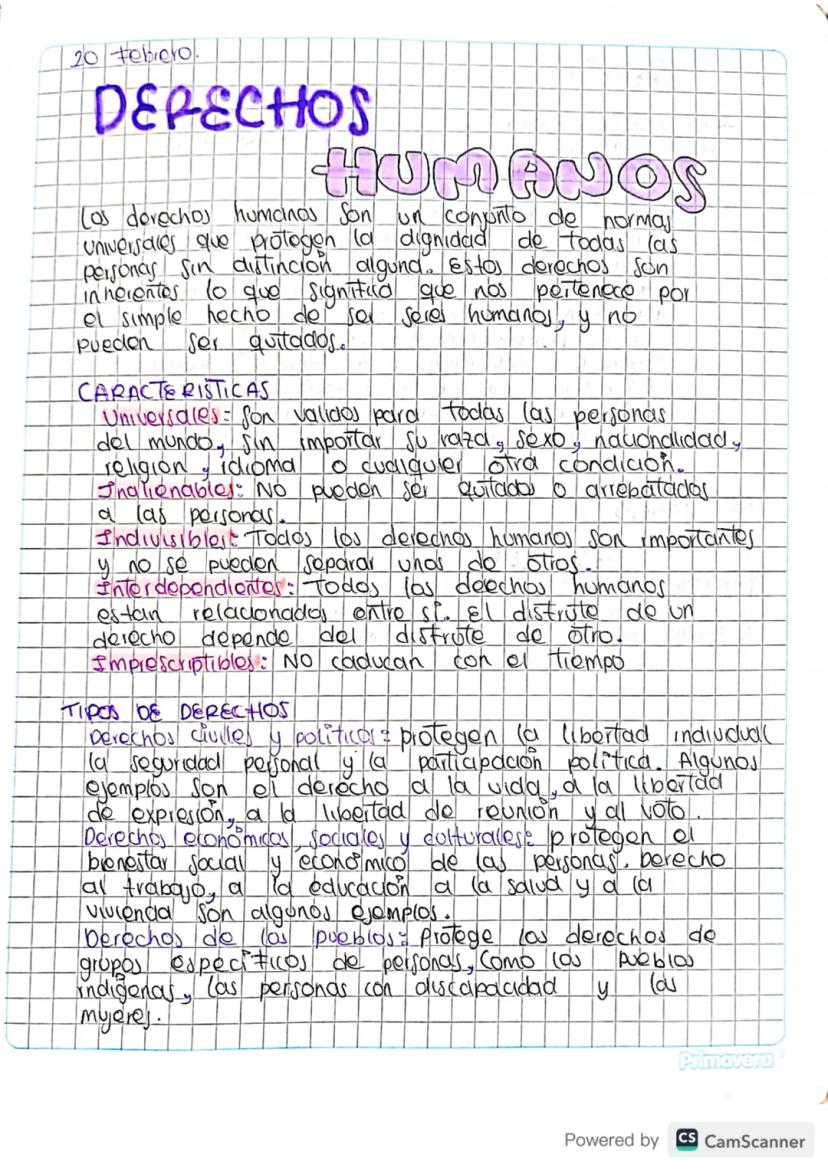 20 Febrero.
DERECHOS
HUMANOS
Los derechos humanos son un conjunto de normas
universales que protegen la dignidad de todas las
personas sin distinción alguna. Estos derechos son
inherentes lo que significa que nos pertenece por
el simple hecho de ser seres humanos, y no
pueden ser quitados.
CARACTERISTICAS
Universales: Son validos para todas las personas
del mundo, sin importar su raza, sexo, nacionalidad,
religion, idioma o cualquier otra condición.
Inalienables: No pueden ser quitados o arrebatados
a las personas.
Indivisibles: Todos los derechos humanos son importantes
y no se pueden separar unos de otros.
Interdependientes: Todos los deechos humanos
estan relacionados entre sí. El disfrute de un
derecho depende del disfrute de otro.
Imprescriptibles: No caducan con el tiempo
TIPOS DE DERECHOS
Derechos civiles y políticos: protegen la libertad individual
la seguridad personal y la participación política. Algunos
ejemplos son el derecho a la vida, a la libertad
de expresión, a la libertad de reunión y al voto.
Derechos económicos, sociales y culturales: protegen el
bienestar social y económico de las personas. Derecho
al trabajo, a la educación a la salud y a la
vivienda son algunos ejemplos.
Derechos de los pueblos: Protege los derechos de
grupos específicos de personas, como los pueblos
indígenas, las personas con discapacidad y las
mujeres.
Primavera
Powered by CS CamScanner